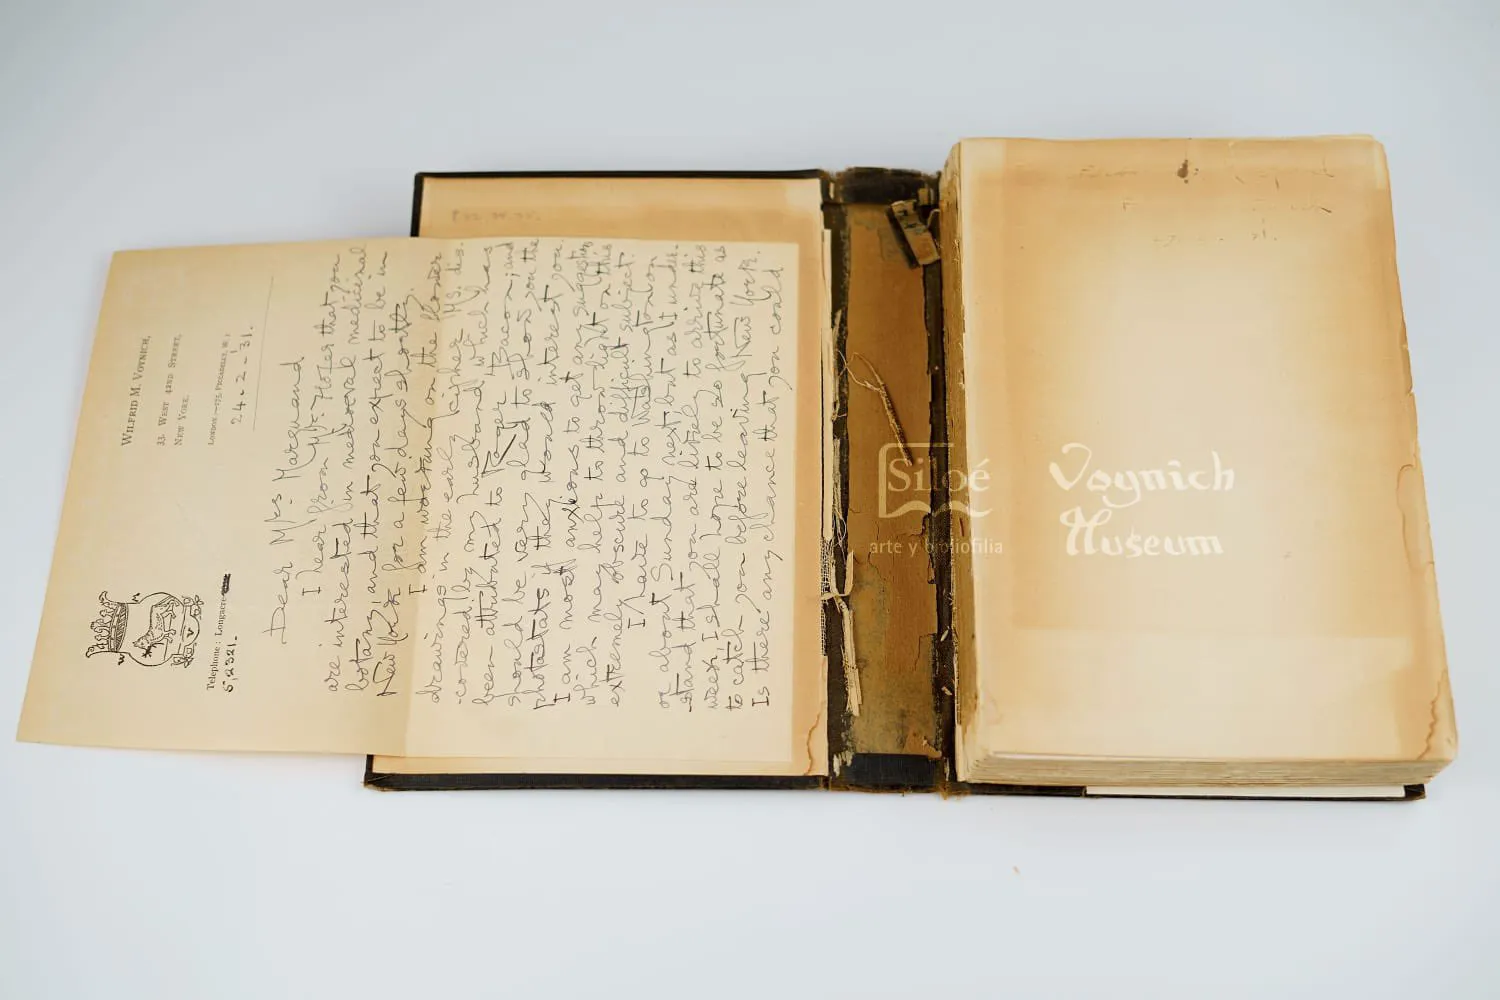 WILFRID M. VOYNICH,
33 WEST 42ND STREET,
NEW YORK.
LONDON:—175, PICCADILLY, W.1.
24-2-31.
Telephone: Longacre
5,2321.
Dear Mrs. Marquand
I hear from Mr. that you
are interested in mediæval medicinal
botany, and that you expect to be in
New York for a few days shortly.
I am working on the flower
drawings in the early cipher MS. dis-
-covered by my husband which has
been attributed to Roger Bacon; and
should be very glad to show you the
photostats if they would interest you.
I am most anxious to get any suggestion
which may help to throw light on this
extremely obscure and difficult subject.
I have to go to Washington on
or about Sunday next, but as I under-
-stand that you are likely to arrive this
week, I shall hope to be so fortunate as
to catch you before leaving New York.
Is there any chance that you could
Siloé
arte y bibliofilia
Voynich
Museum